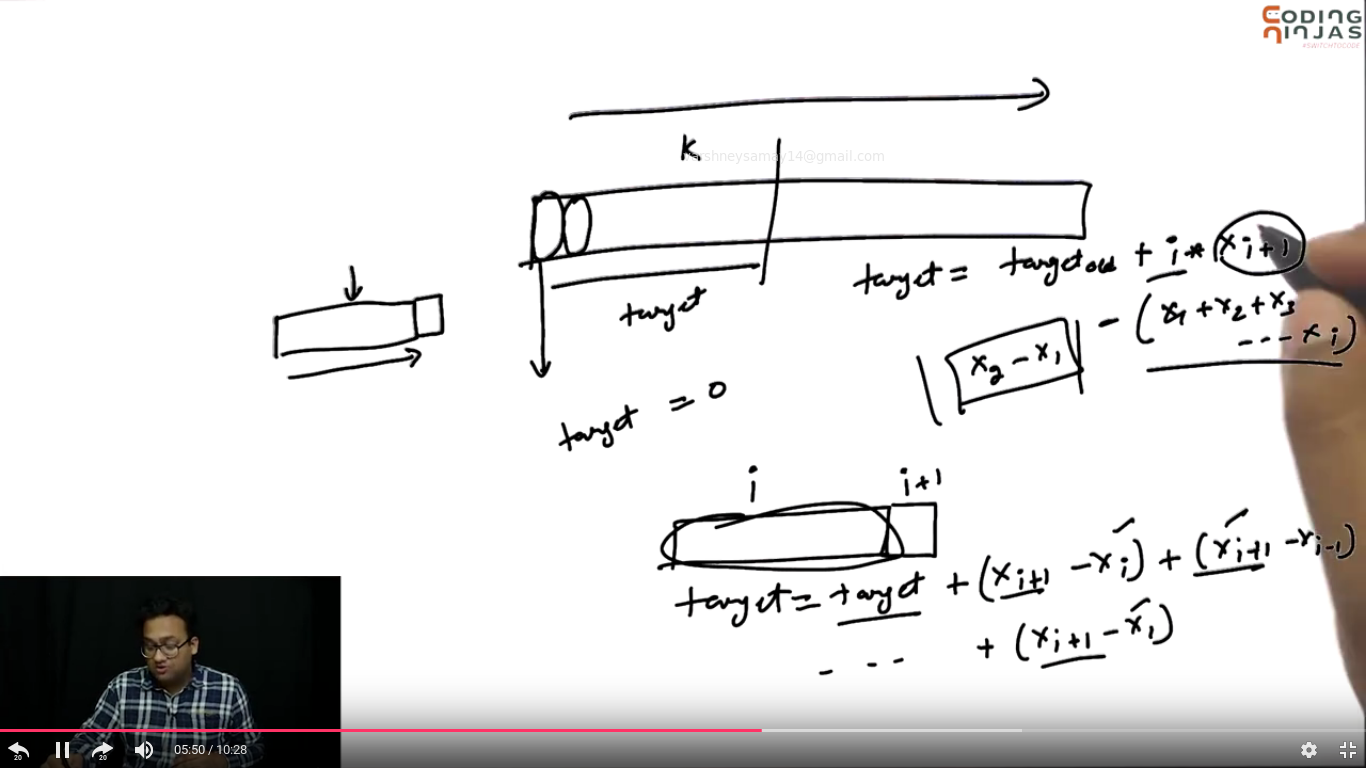 CODING
NINJAS
#SWITCHTOCODE
K
varshneysamay14@gmail.com
target = target old + i * x i+1
- (x1 + x2 + x3
--- xi)
target
| x2 - x1 |
target = 0
i i+1
target = target + (xi+1 - xi) + (xi+1 - xi-1)
--- + (xi+1 - x1)
20
20
05:50 / 10:28